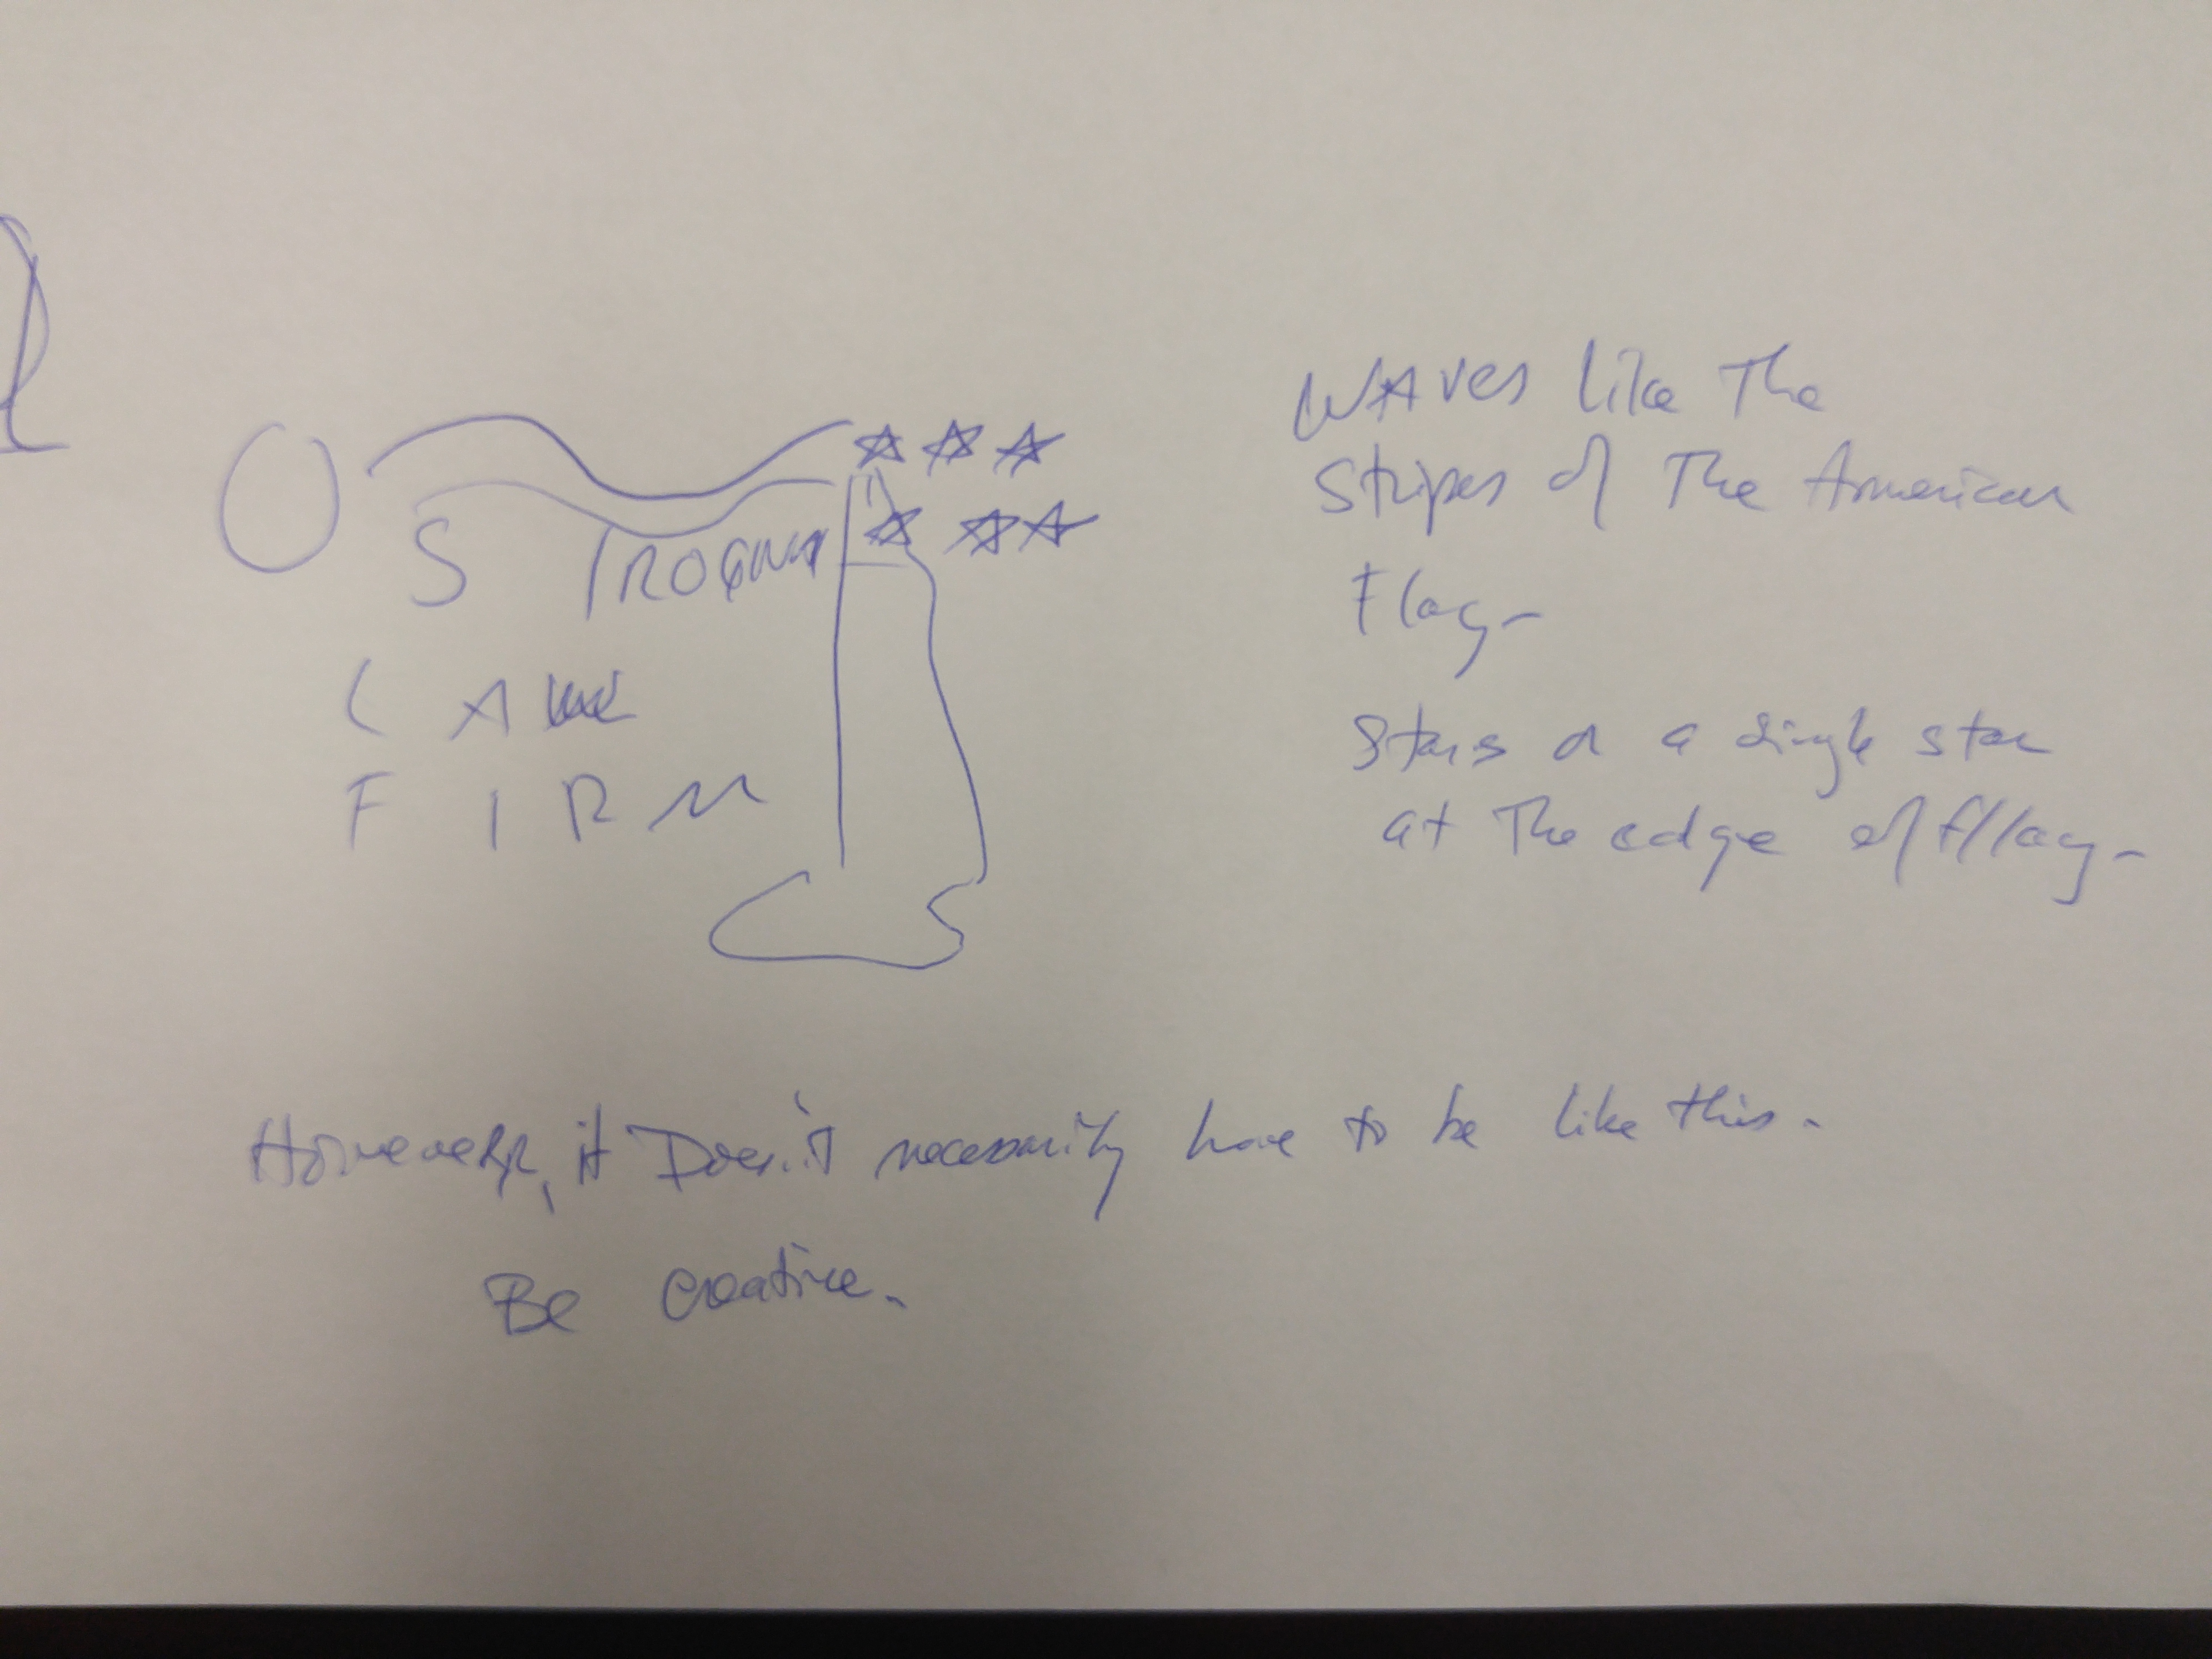 O STROGNAY
LAW
FIRM
WAVES like The
Stripes of The American
Flag-
Stars or a single star
at The edge of flag-
However, it Doesn't necessarily have to be like this.
Be creative.